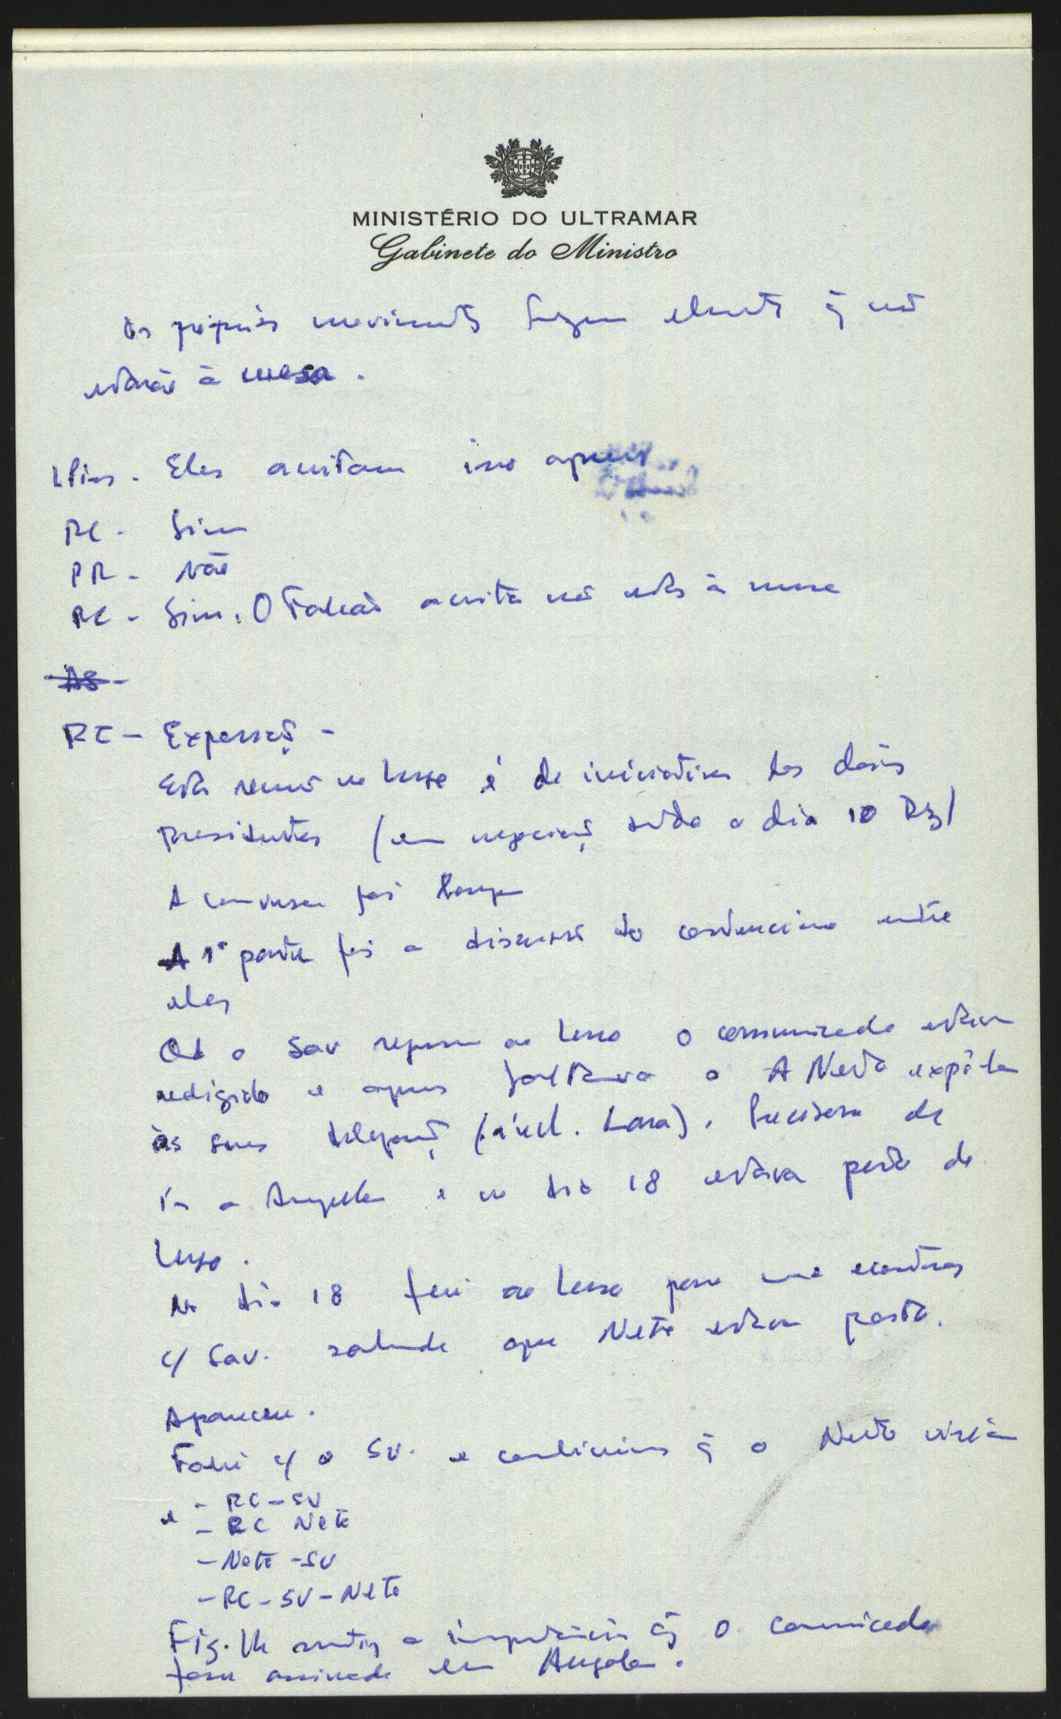 MINISTÉRIO DO ULTRAMAR
Gabinete do Ministro
Os próprios movimentos q̃ não
estarão à mesa.
Eles aceitam isso
RC - Sim
PR - Não
RC - Sim. O aceita não à mesa
AS -
RC - Exposição -
Esta reunião no Luso é de iniciativa dos dois
Presidentes (em negociação a dia 10 Dez)
A conversa foi longa
A 1ª parte foi a discussão do contencioso entre
eles
Qd o Sav ao Luso o comunicado estava
redigido e apenas faltava o A Neto expô-lo
às suas delegações (incl. Lara). Precisava de
ir a Angola e no dia 18 estava perto de
Luso.
No dia 18 fui ao Luso para encontros
c/ Sav. sabendo que Neto estava perto.
Apareceu.
Falei c/ o Sv. e q̃ o Neto viria
e - RC - SV
- RC Neto
- Neto - SV
- RC - SV - Neto
Fiz-lhe sentir a importância q̃ o comunicado
fosse assinado em Angola.